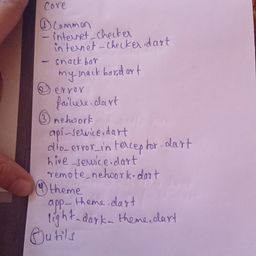 core
① common
- internet_checker
internet_checker.dart
- snack bar
my_snack bar.dart
② error
failure.dart
③ network
api_service.dart
dio_error_interceptor.dart
hive_service.dart
remote_network.dart
④ theme
app_theme.dart
light_dark_theme.dart
⑤ utils